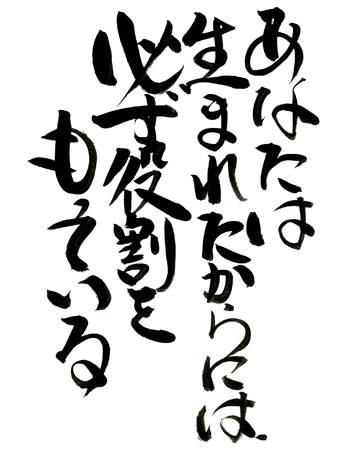 あなたは
生まれたからには
必ず役割を
もている